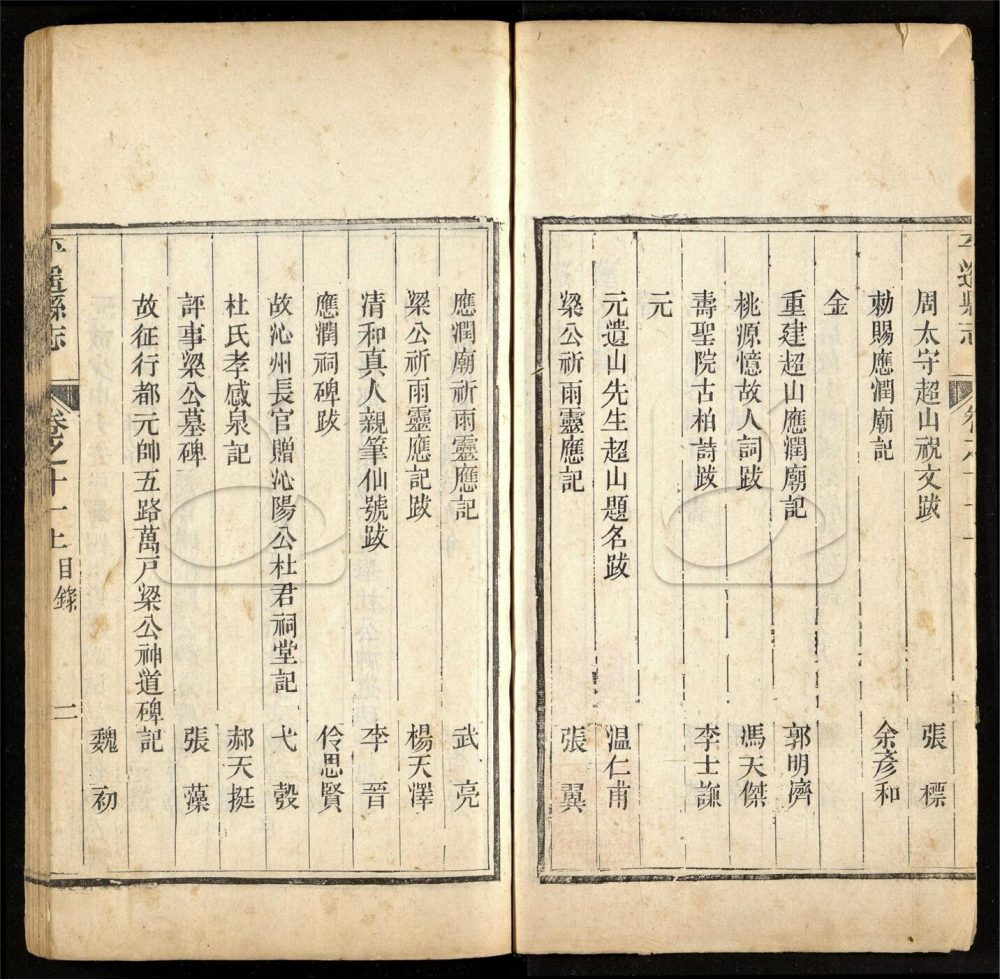 平遙縣志
卷之十一上
周太守超山祝文跋 張標
勅賜應潤廟記 余彥和
金
重建超山應潤廟記 郭明濟
桃源憶故人詞跋 馮天傑
壽聖院古柏詩跋 李士謙
元
元遺山先生超山題名跋 温仁甫
梁公祈雨靈應記 張翼
應潤廟祈雨靈應記 武亮
梁公祈雨靈應記跋 楊天澤
清和真人親筆仙號跋 李晉
應潤祠碑跋 伶思賢
故沁州長官贈沁陽公杜君祠堂記 弋彀
杜氏孝感泉記 郝天挺
評事梁公墓碑 張藻
故征行都元帥五路萬戸梁公神道碑記
魏初
平遙縣志
卷之十一上 目錄 二